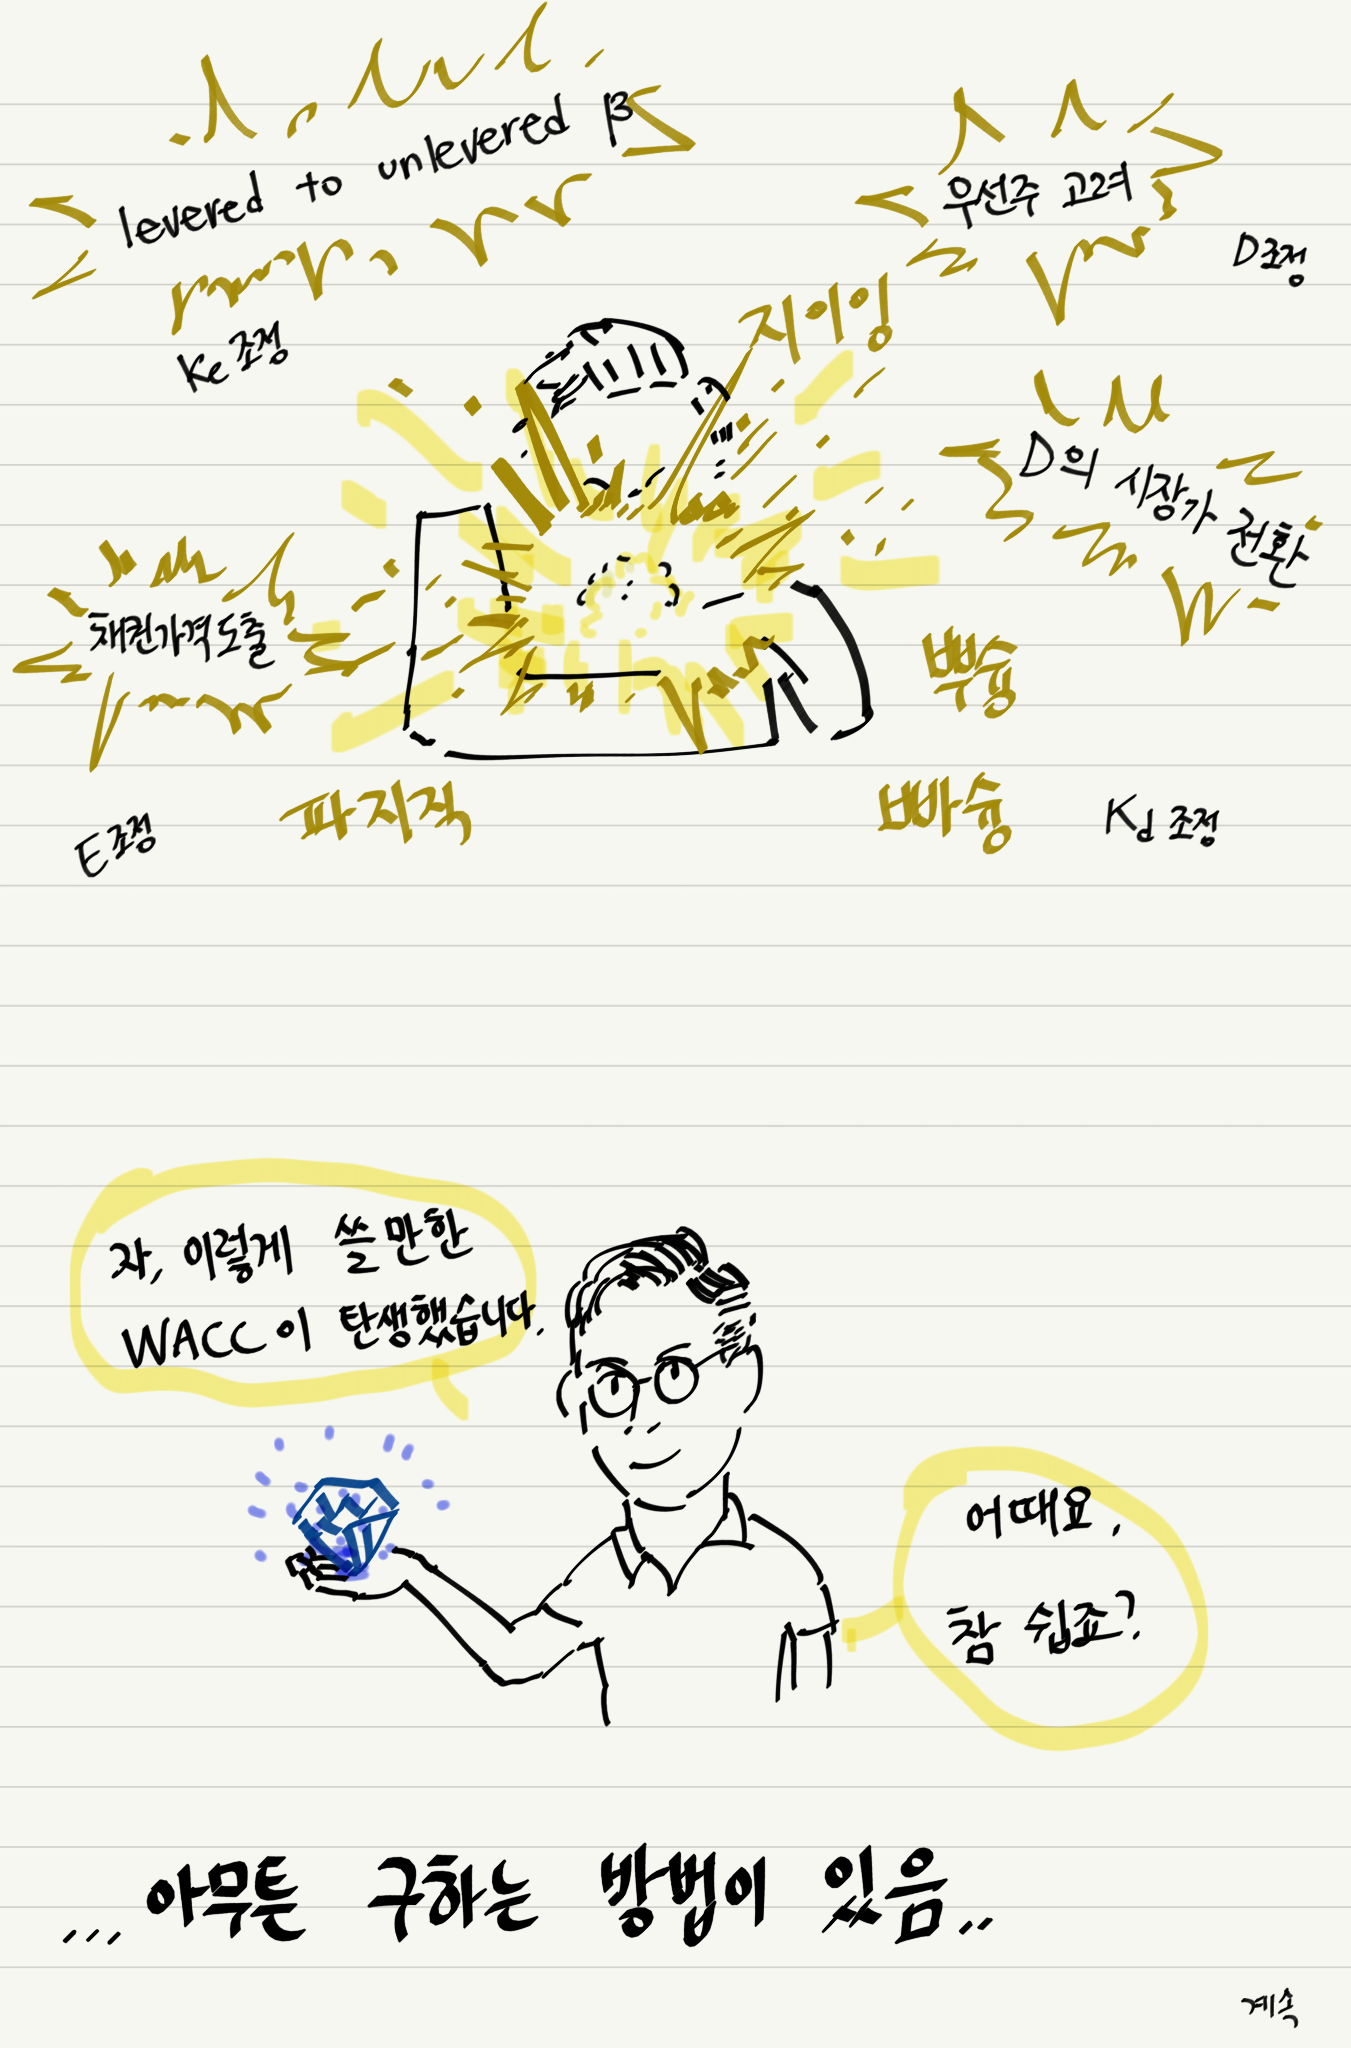 levered to unlevered β
우선주 고려
D조정
지이잉
Ke조정
D의 시장가 전환
채권가격도출
뿌슝
파지직
빠슝
E조정
Kd 조정
자, 이렇게 쓸만한
WACC이 탄생했습니다.
어때요,
참 쉽죠?
...아무튼 구하는 방법이 있음..
계속